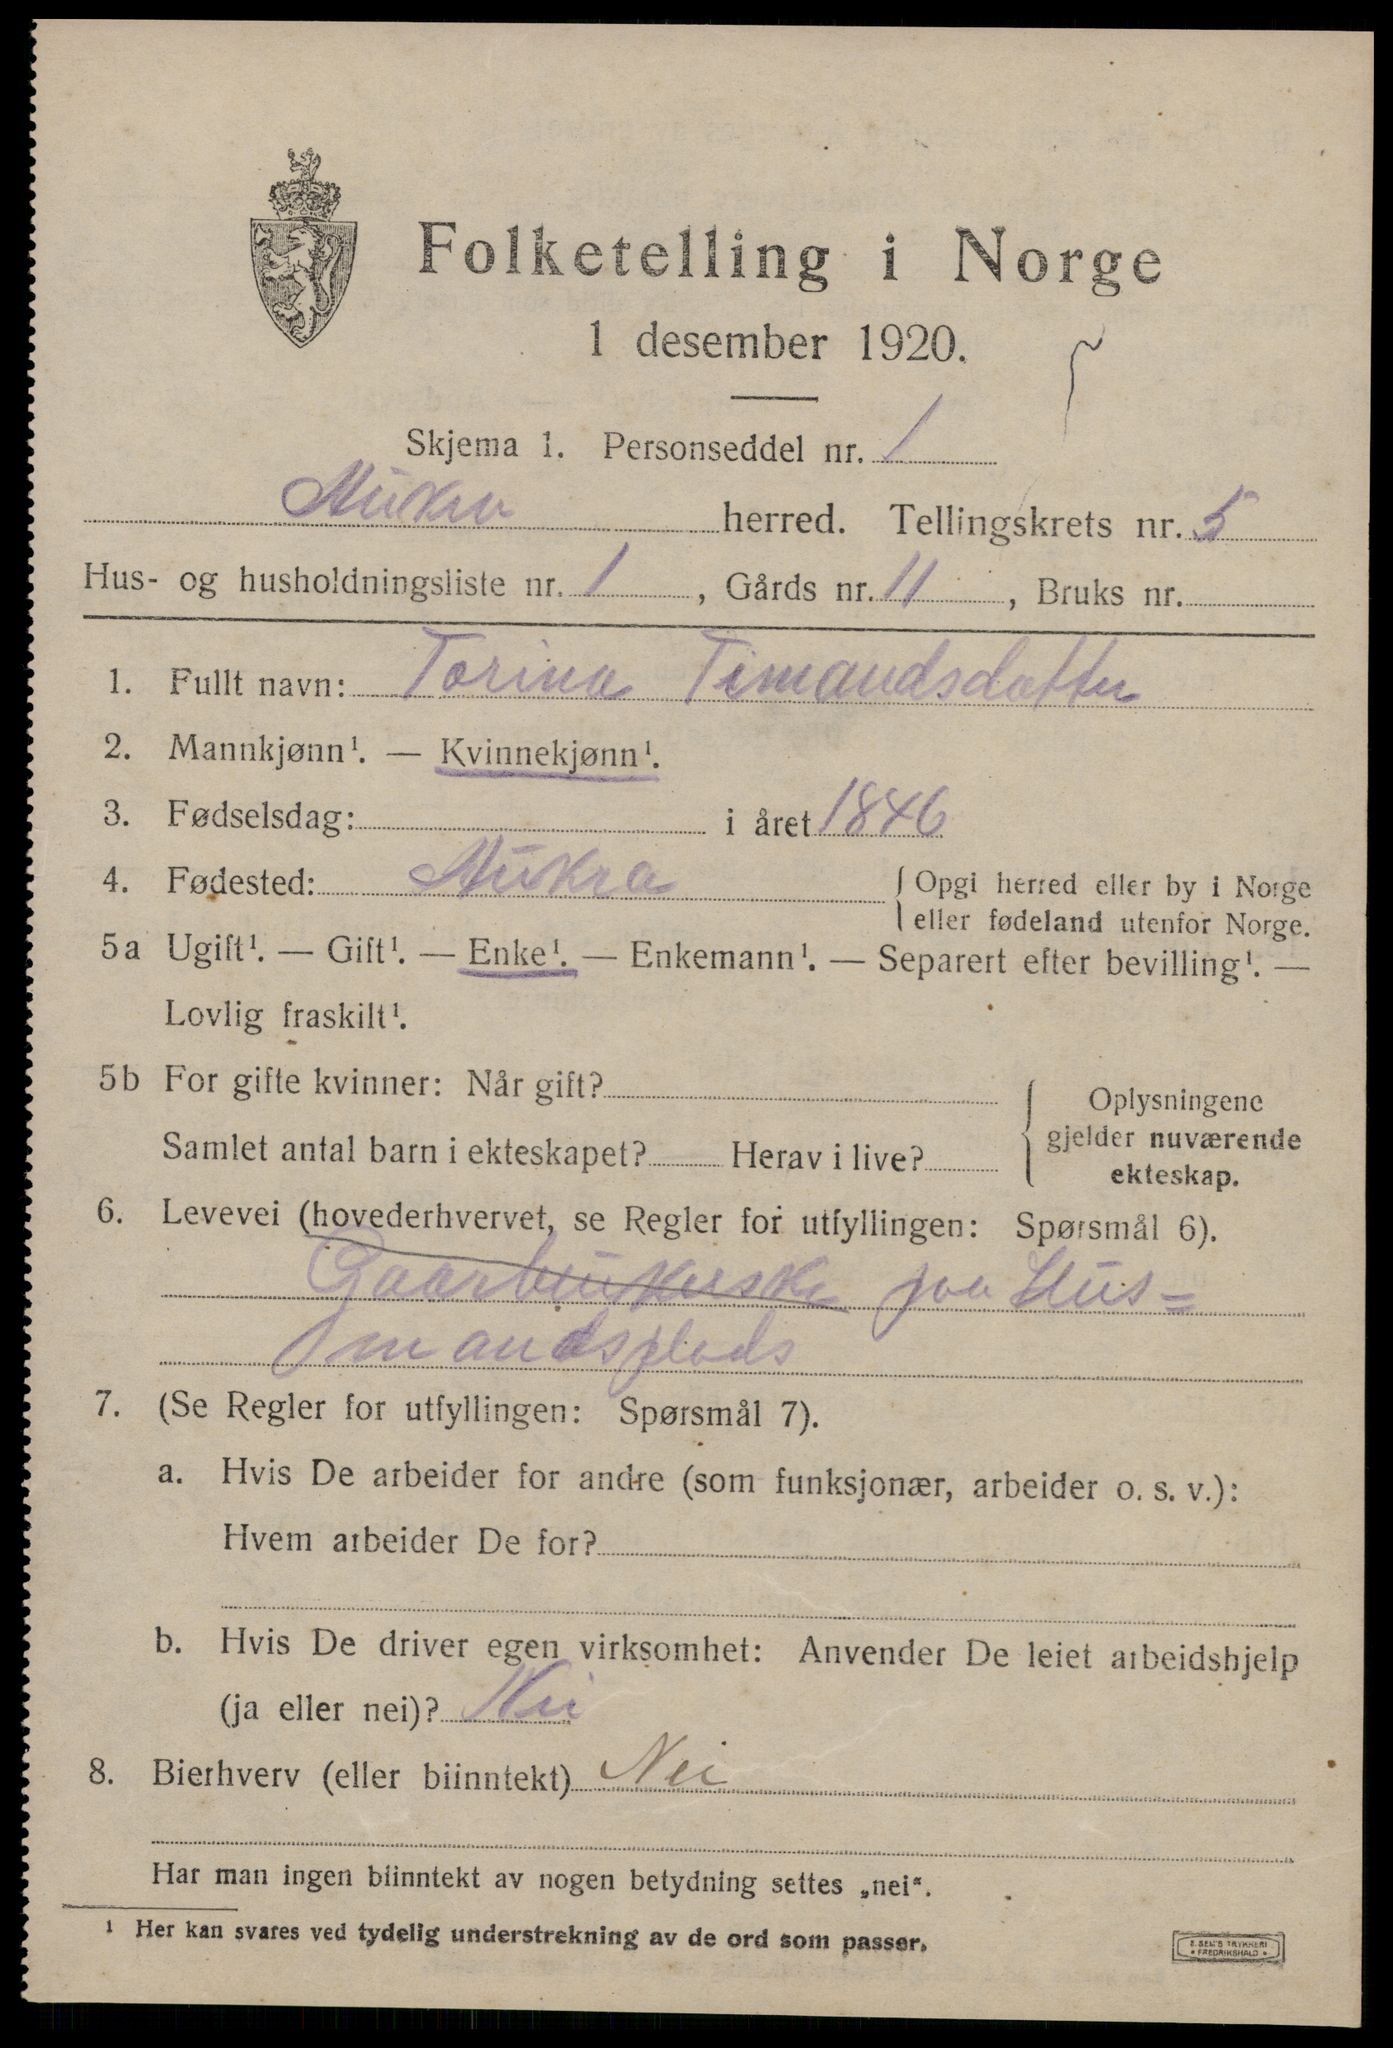 Folketelling i Norge
1 desember 1920.
Skjema 1. Personseddel nr. 1
Aukra herred. Tellingskrets nr. 5
Hus- og husholdningsliste nr. 1, Gårds nr. 11, Bruks nr.
1. Fullt navn: Torina Timandsdatter
2. Mannkjønn¹. — Kvinnekjønn¹.
3. Fødselsdag: i året 1846
4. Fødested: Aukra { Opgi herred eller by i Norge
eller fødeland utenfor Norge.
5a Ugift¹. — Gift¹. — Enke¹. — Enkemann¹. — Separert efter bevilling¹. —
Lovlig fraskilt¹.
5b For gifte kvinner: Når gift? { Oplysningene
gjelder nuværende
Samlet antal barn i ekteskapet? Herav i live? ekteskap.
6. Levevei (hovederhvervet, se Regler for utfyllingen: Spørsmål 6).
Gaarbrukerske paa Hus=
mandsplads
7. (Se Regler for utfyllingen: Spørsmål 7).
a. Hvis De arbeider for andre (som funksjonær, arbeider o. s. v.):
Hvem arbeider De for?
b. Hvis De driver egen virksomhet: Anvender De leiet arbeidshjelp
(ja eller nei)? Nei
8. Bierhverv (eller biinntekt) Nei
Har man ingen biinntekt av nogen betydning settes „nei“.
¹ Her kan svares ved tydelig understrekning av de ord som passer.
E. SEM'S TRYKKERI
• FREDRIKSHALD •